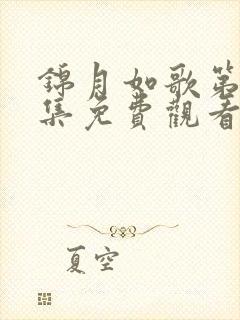 錦月如歌第
集免費觀看
夏空